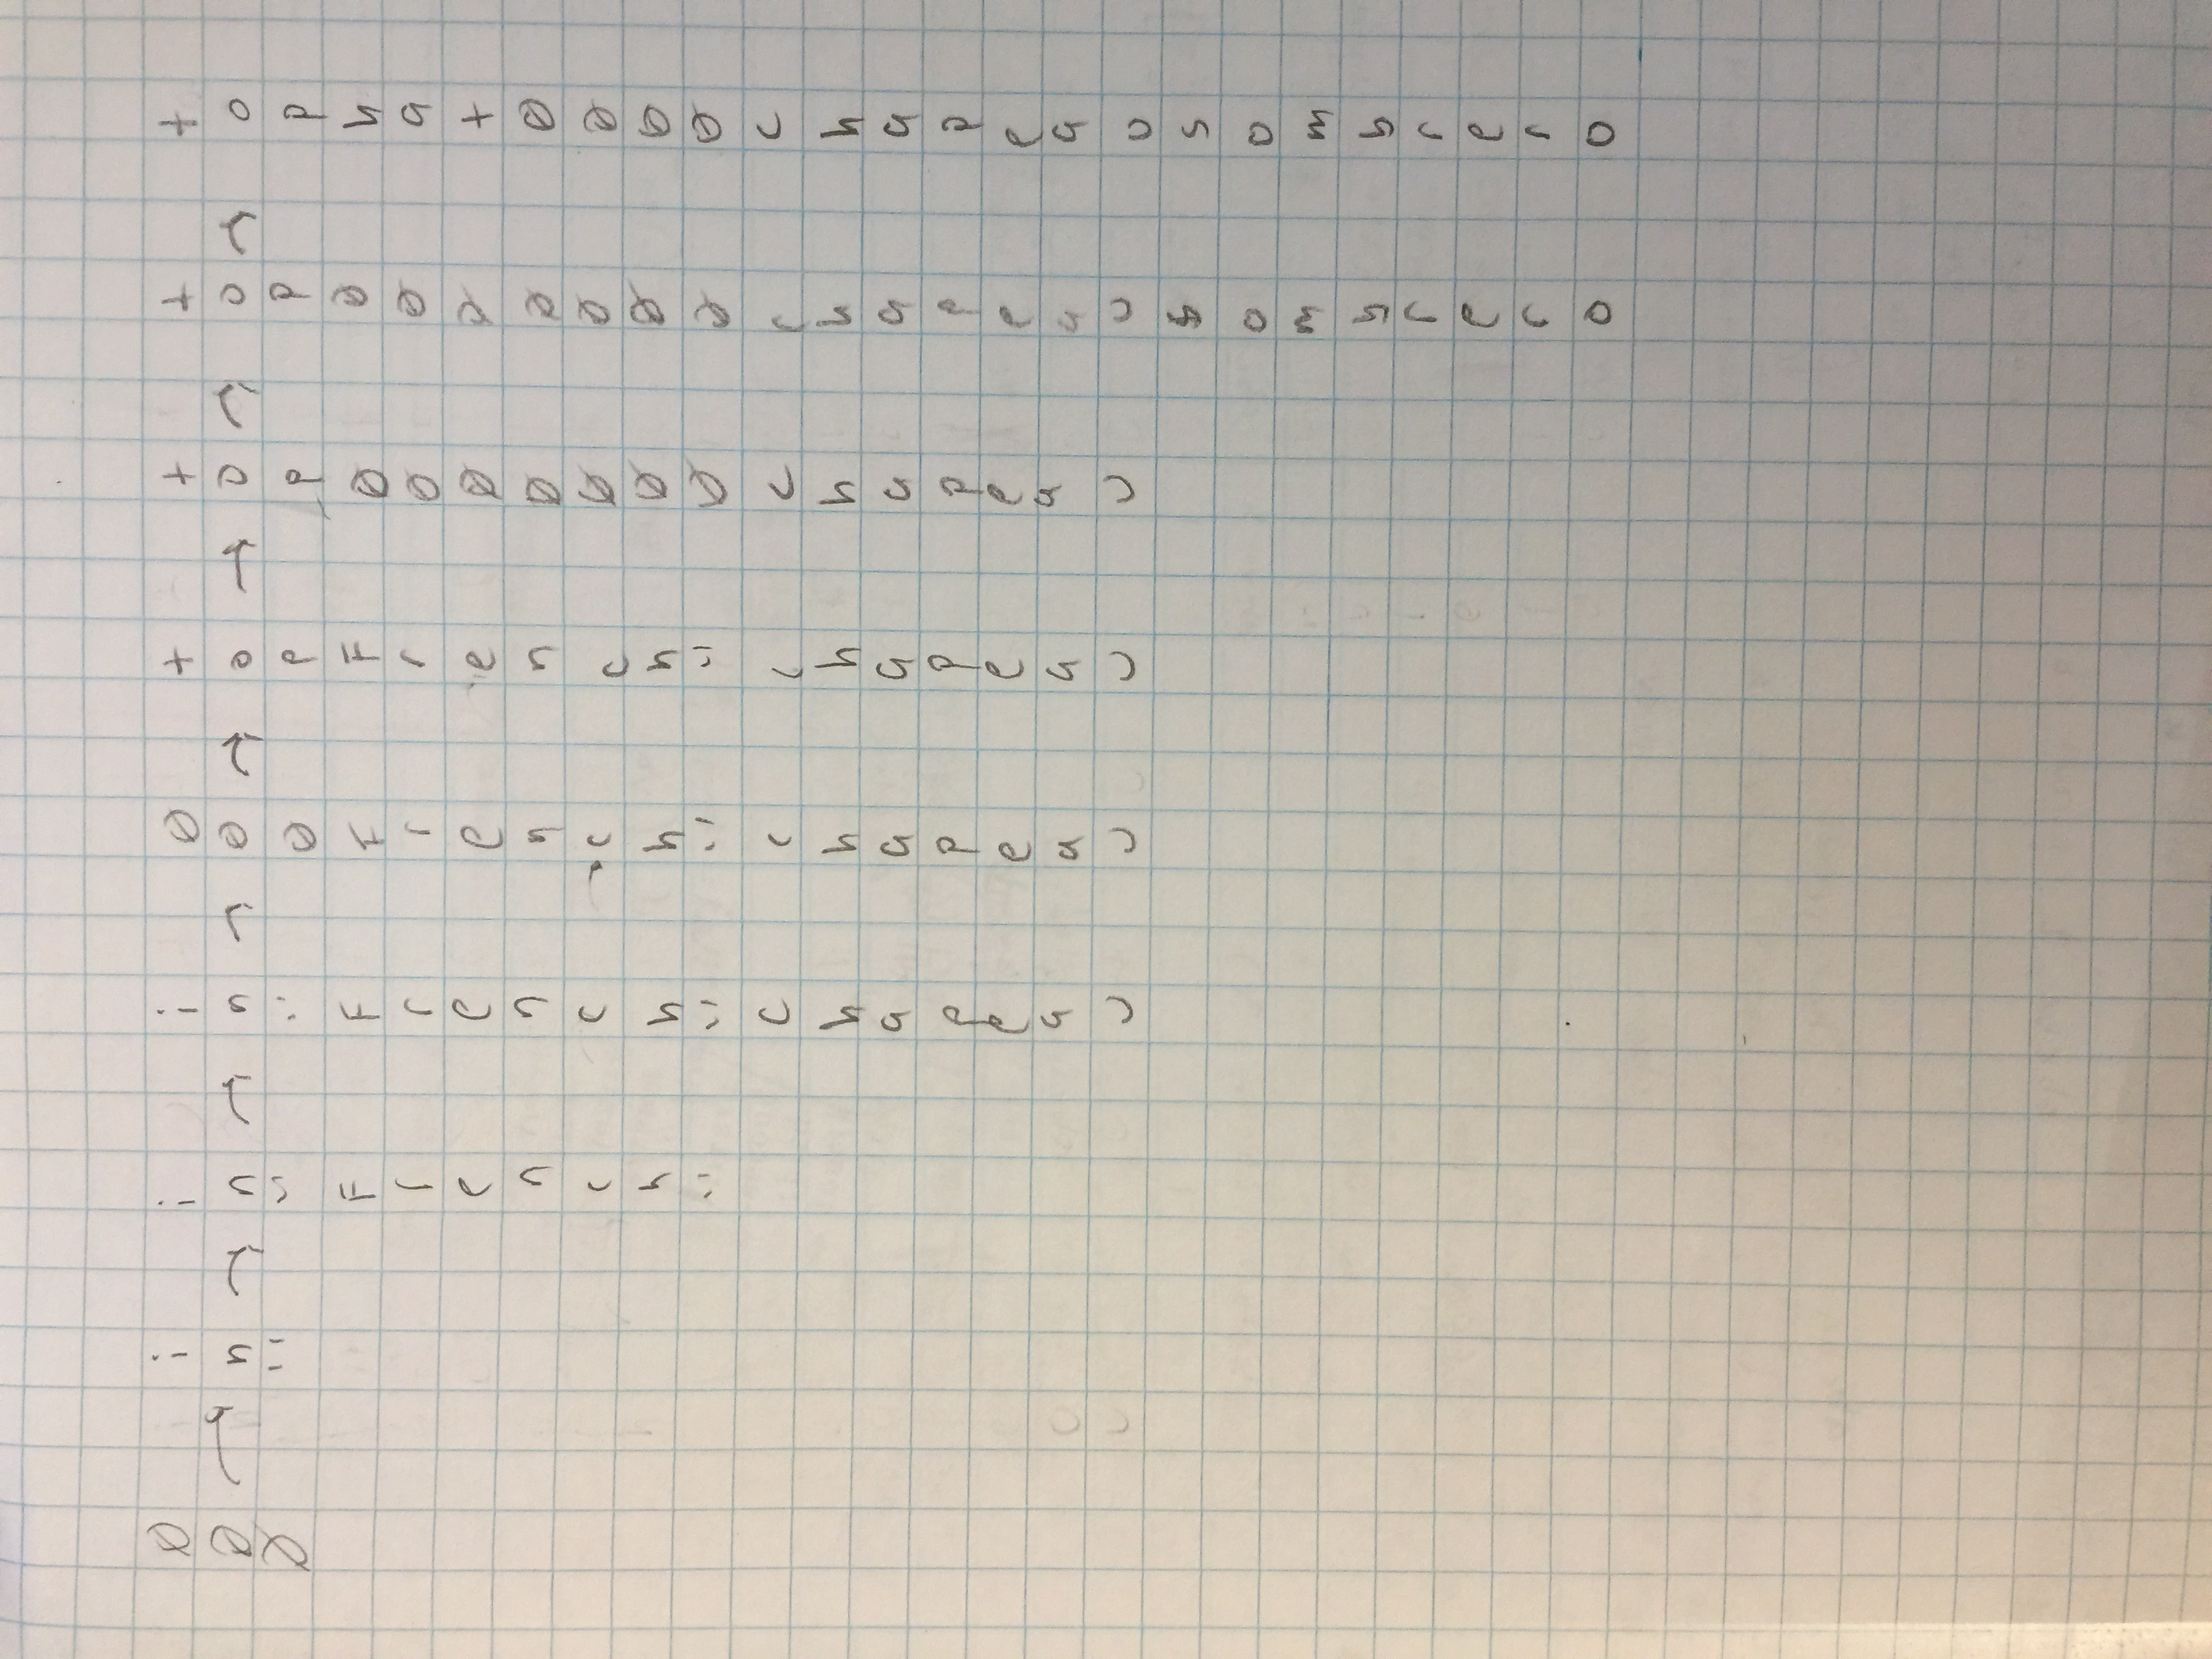 ØØØ
→
in¨
→
in¨French¨
→
in¨French¨chapeau
→
ØØØFrench¨chapeau
→
topFrench¨chapeau
→
topØØØØØØØchapeau
→
topØØØØØØØchapeausombrero
→
tophatØØØØchapeausombrero